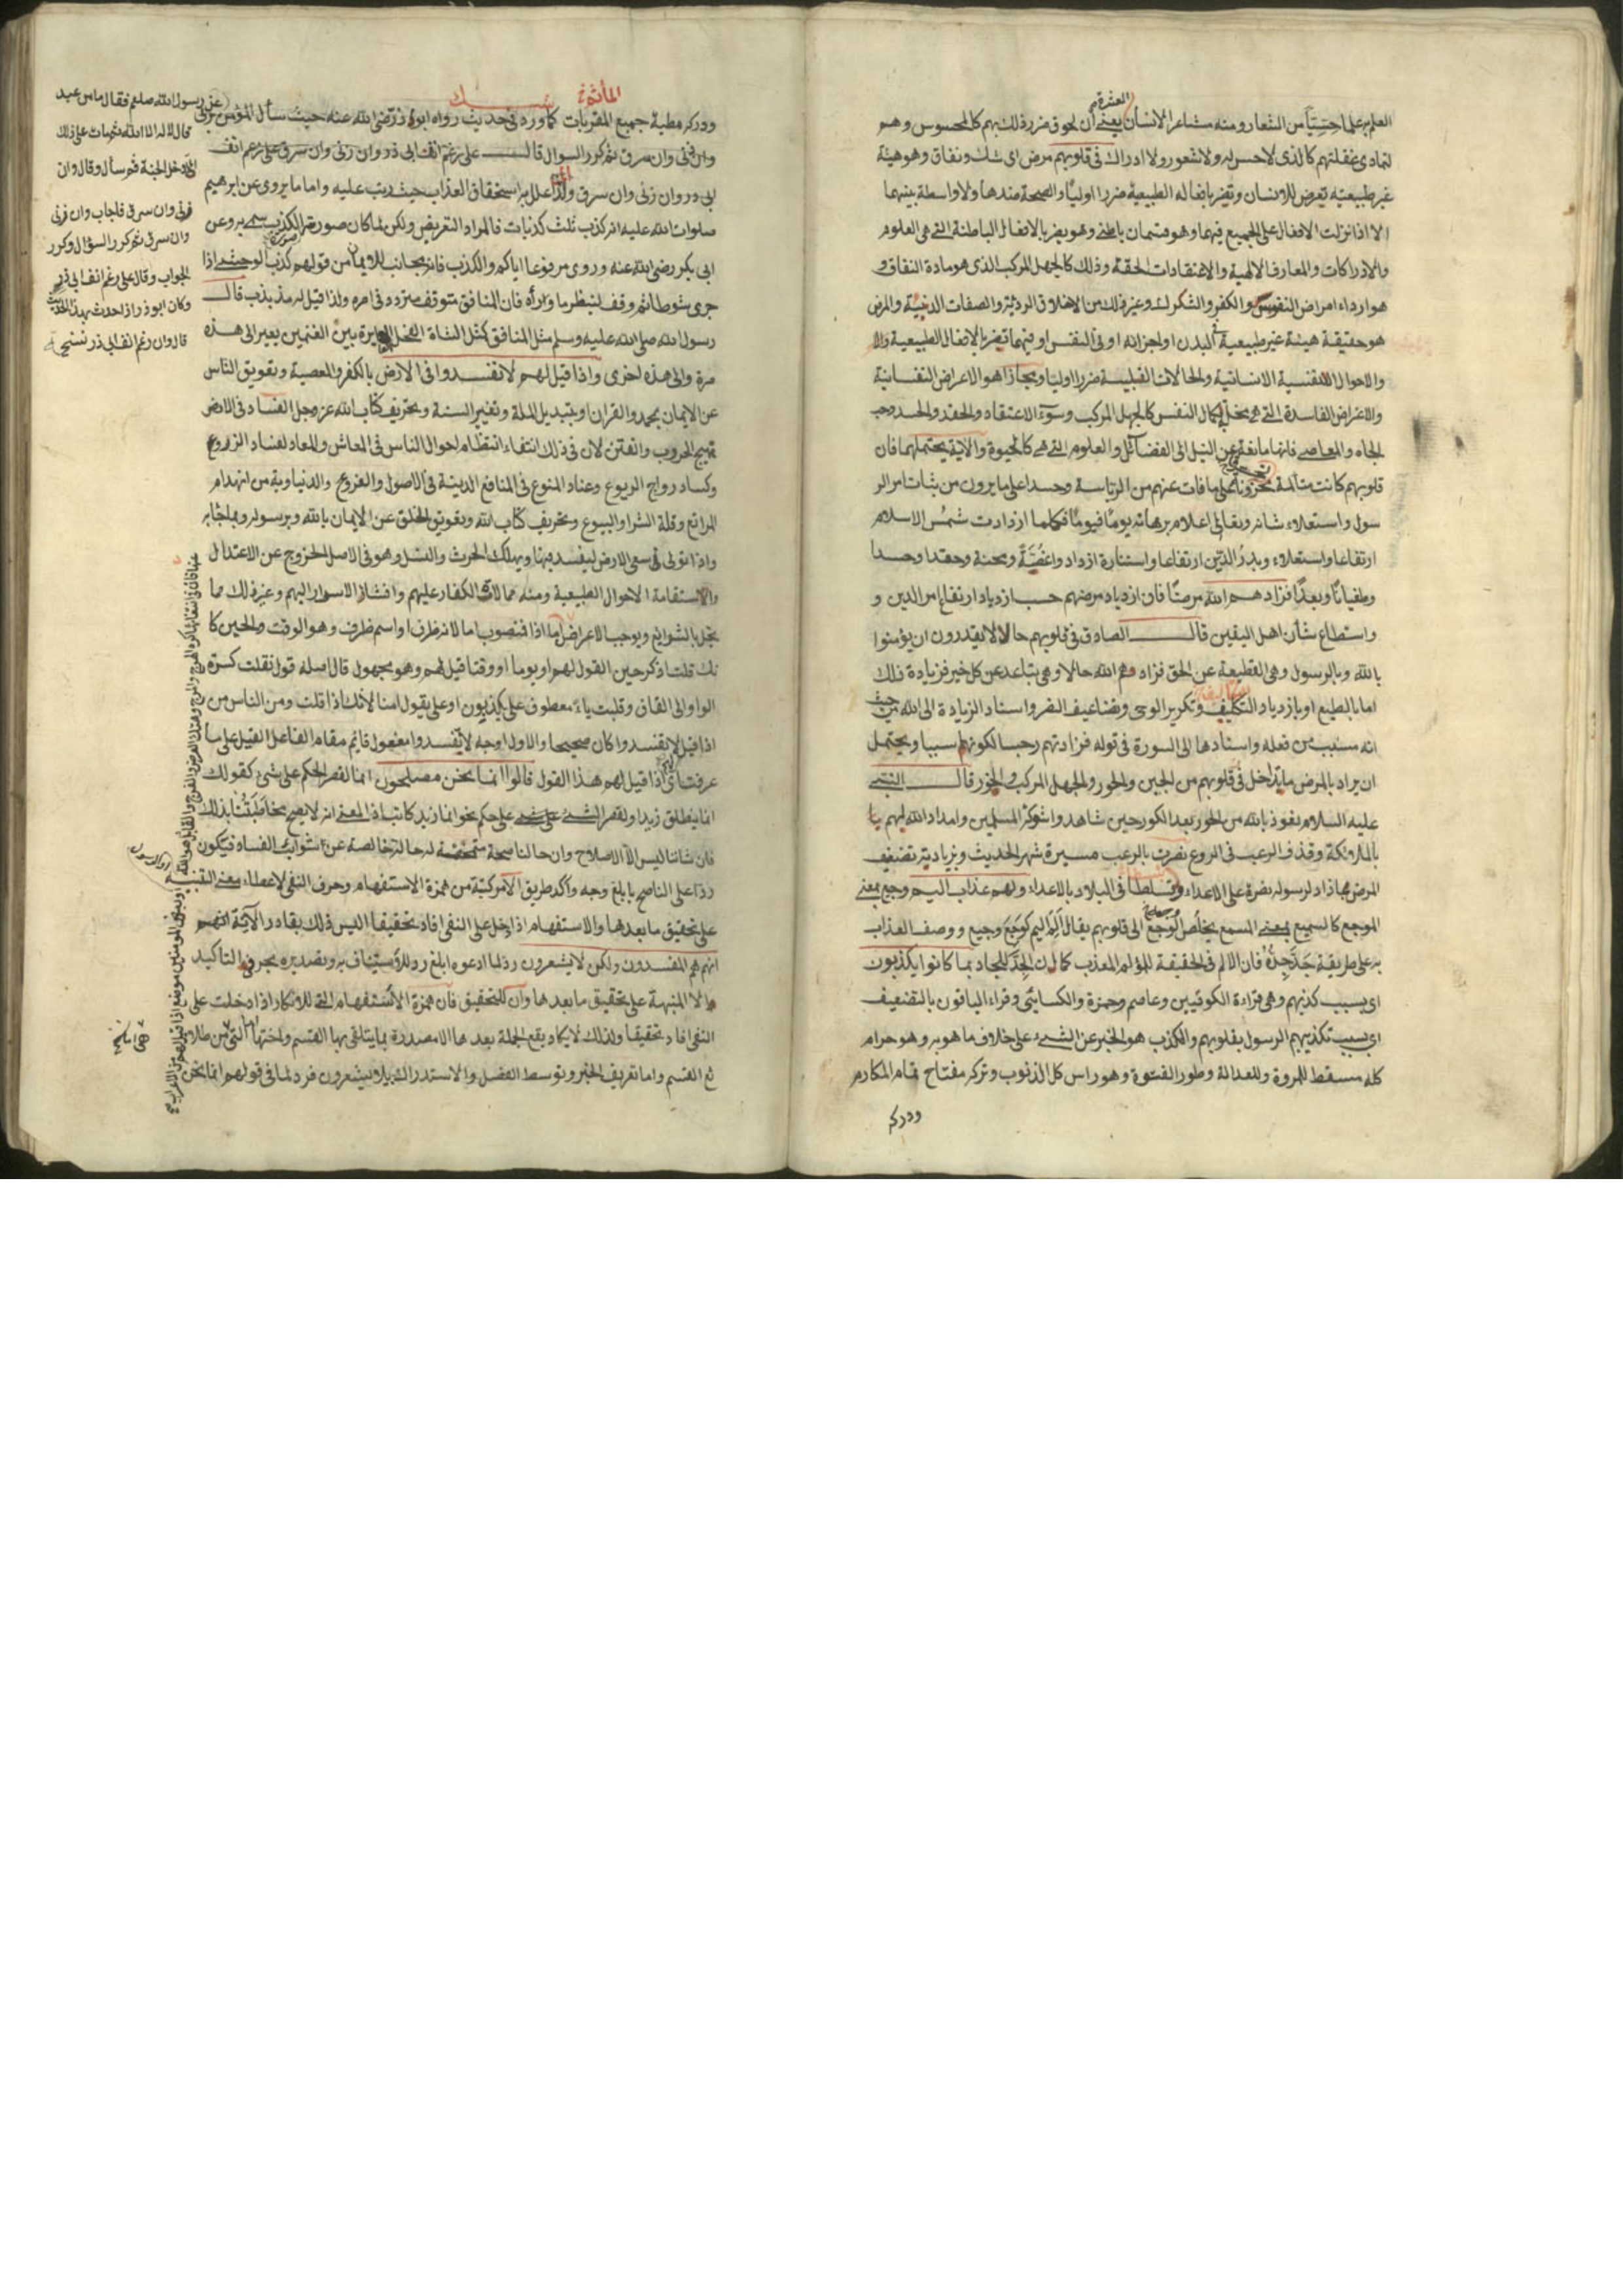 العلم به علما حسيا من الشعار ومنه مشاعر الانسان يعني ان لحوق ضرر ذلك بهم كالمحسوس وهم
لتمادى غفلتهم كالذى لا حس له ولا شعور ولا ادراك فى قلوبهم مرض اى شك ونفاق وهو هيئة
غير طبيعية تعرض للانسان وتضر بافعاله الطبيعية ضررا اوليا والصحة ضدها ولا واسطة بينهما
الا اذا نزلت الافعال على الجميع فيهما وهو قسمان باطنى وهو يضر بالافعال الباطنة التى هى العلوم
والادراكات والمعارف الالهية والاعتقادات الحقة وذلك كالجهل المركب الذى هو مادة النفاق و
هو ارداء امراض النفوس والكفر والشكوك وغير ذلك من الاخلاق الردية والصفات الدنية والمرض
هو حقيقة هيئة غير طبيعية فى البدن او اجزائه او فى النفس او فيهما تضر بالافعال الطبيعية والا
والاحوال النفسية الانسانية والحالات القلبية ضررا اوليا ومجازا هو الاعراض النفسانية
والاغراض الفاسدة التى تخل بكمال النفس كالجهل المركب وسوء الاعتقاد والحقد والحسد وحب
الجاه والمعاصى فانها مانعة عن النيل الى الفضائل والعلوم التى هى كالحيوة والاية يحتملهما فان
قلوبهم كانت متألمة تحزنا على ما فات عنهم من الرياسة وحسدا على ما يرون من ثبات امر الر
سول واستعلاء شانه وبقائى اعلام برهانه يوما فيوما فكلما ازدادت شمس الاسلام
ارتفاعا واستعلاء وبدر الدين ارتفاعا واستنارة ازدادوا غصة ومحنة وحقدا وحسدا
وطغيانا وبعدا فزادهم الله مرضا فان ازدياد مرضهم حسب ازدياد ارتفاع امر الدين و
واستطاع شان اهل اليقين قال الصادق فى قلوبهم حالا لا يقدرون ان يؤمنوا
بالله وبالرسول وهى القطيعة عن الحق فزادهم الله حالا وهى تباعد عن كل خير فزيادة ذلك
اما بالطبع او بازدياد التكليف وتكرير الوحى وتضاعيف النصر واسناد الزيادة الى الله من حيث
انه مسبب من فعله واسنادها الى السورة فى قوله فزادتهم رجسا لكونها سببا ويحتمل
ان يراد بالمرض ما تداخل فى قلوبهم من الجبن والخور والجهل المركب والخور قال النبى
عليه السلام نعوذ بالله من الحور بعد الكور حين شاهدوا شوكة المسلمين وامداد الله لهم با
بالملائكة وقذف الرعب فى الروع نصرت بالرعب مسيرة شهر الحديث وبزيادته تضعيف
المرض بما ازداد لرسوله نصرة على الاعداء وتسلطا فى البلاد بالاعداء ولهم عذاب اليم وجيع بمعنى
الموجع كالسميع بمعنى المسمع يخلص الوجع الى قلوبهم يقال الم اليم كوجع وجيع ووصف العذاب
به على طريقة جد جده فان الالم فى الحقيقة للمؤلم المعذب كما ان الجد للجاد بما كانوا يكذبون
اى بسبب كذبهم وهى قراءة الكوفيين وعاصم وحمزة والكسائى وقراء الباقون بالتضعيف
اى بسبب تكذيبهم الرسول بقلوبهم والكذب هو الخبر عن الشىء على خلاف ما هو به وهو حرام
كله مسقط للمروة وللعدالة وطور الفتوة وهو راس كل الذنوب وتركه مفتاح تمام المكارم
ودركه
ودركه مطية جميع المقربات كما ورد فى حديث رواه ابو ذر رضى الله عنه حيث سأل المؤمن يزنى
وان زنى وان سرق ثم كرر السوال قال على رغم انف ابى ذر وان زنى وان سرق على رغم انف
ابى ذر وان زنى وان سرق ولذا علل به استحقاق العذاب حيث رتب عليه واما ما يروى عن ابرهيم
صلوات الله عليه انه كذب ثلث كذبات فالمراد التعريض ولكن لما كان صورته الكذب سمى به وعن
ابى بكر رضى الله عنه وروى مرفوعا اياكم والكذب فانه مجانب للايمان من قولهم كذب الوحشى اذا
جرى شوطا ثم وقف لينظر ما وراه فان المنافق متوقف متردد فى امره ولذا قيل له مذبذب قال
رسول الله صلى الله عليه وسلم مثل المنافق كمثل الشاة العايرة بين الغنمين يعير الى هذه
مرة والى هذه اخرى واذا قيل لهم لا تفسدوا فى الارض بالكفر والمعصية وتعويق الناس
عن الايمان بمحمد والقران وبتبديل الملة وتغيير السنة وتحريف كتاب الله عز وجل الفساد فى الارض
تهيج الحروب والفتن لان فى ذلك انتفاء انتظام احوال الناس فى المعاش والمعاد لفساد الزروع
وكساد رواج الربوع وعناد المنوع فى المنافع الدينية فى الاصول والفروع والدنياوية من انهدام
المراتع وقلة الشرا والبيوع وتحريف كتاب الله وتعويق الخلق عن الايمان بالله وبرسوله وبما جاء به
واذا تولى سعى فى الارض ليفسد فيها ويهلك الحرث والنسل وهو فى الاصل الخروج عن الاعتدال
والاستقامة الاحوال الطبيعية ومنه ممالات الكفار عليهم وافشاء الاسرار اليهم وغير ذلك مما
يخل بالشرايع ويوجب الاعراض اما اذا فنصوب اما لانه ظرف او اسم ظرف وهو الوقت والحين كا
نك قلت اذكر حين القول لهم او يوما او وقتا قيل لهم وهو مجهول قال اصله قول نقلت كسرة
الواو الى القاف وقلبت ياء معطوف على يكذبون او على يقول امنا لانك اذا قلت ومن الناس من
اذا قيل لا تفسدوا كان صحيحا والاول اوجه لا تفسدوا مفعول قايم مقام الفاعل القيل على ما
عرفت اذا قيل لهم هذا القول قالوا انما نحن مصلحون انما لقصر الحكم على شىء كقولك
انما ينطلق زيد ولقصر الشىء على حكم نحو انما زيد كاتب اذ المعنى انه لا يصح مخاطبتنا بذلك
فان شاننا ليس الا الاصلاح وان حالنا صحة متمحضة له حالة خالصة عن شوائب الفساد فيكون
ردا على الناصح بابلغ وجه واكد طريق الا مركبة من همزة الاستفهام وحرف النفى لاعطاء معنى التنبيه
على تحقيق ما بعدها والاستفهام اذا دخل على النفى افاد تحقيقا اليس ذلك بقادر الاية انهم
انهم هم المفسدون ولكن لا يشعرون رد لما ادعوه ابلغ رد للاستيناف به وتصديره بحرفى التاكيد
الا المنبهة على تحقيق ما بعدها وان للتحقيق فان همزة الاستفهام التى للانكار اذا دخلت على
النفى افاد تحقيقا ولذلك لا يكاد يقع الجملة بعدها الا مصدرة بما يتلقى بها القسم واختها اما التى من طلا
ئع القسم واما تعريف الخبر وتوسط الفصل والاستدراك بلا يشعرون فرد لما فى قولهم انما نحن
عن رسول الله صلعم فقال ما من عبد
قال لا اله الا الله ثم مات على ذلك
الا دخل الجنة ثم سأل وقال وان
زنى وان سرق فاجاب وان زنى
وان سرق ثم كرر السؤال وكرر
الجواب وقال على رغم انف ابى ذر
وكان ابو ذر اذا حدث بهذا الحديث
قال وان رغم انف ابى ذر